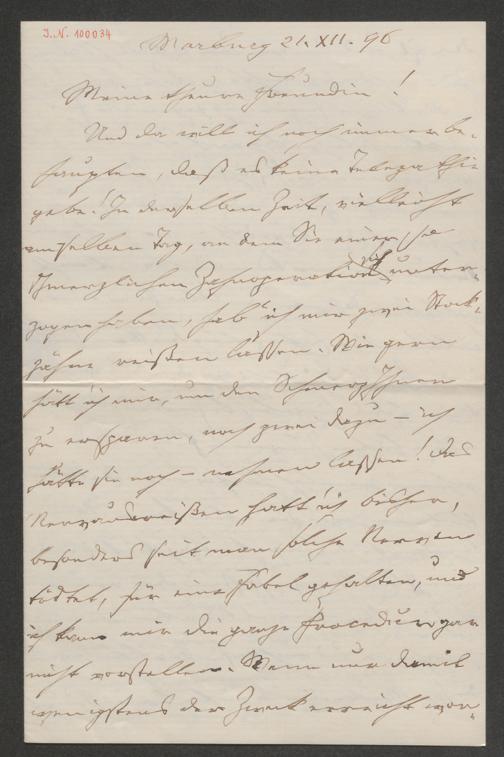 J. N. 100034
Marburg 21. XII. 96
Meine theure Freundin!
Und da will ich noch immer be-
haupten, daß es keine Telepathie
gebe! In derselben Zeit, vielleicht
am selben Tag, an dem Sie einer so
schmerzlichen Zahnoperation sich unter-
zogen haben, hab' ich mir zwei Stock-
zähne reißen lassen. Wie gern
hätt' ich mir, um den Schmerz Ihnen
zu ersparen, noch zwei dazu – ich
hätte sie noch – nehmen lassen! Das
Nervausreißen hatt' ich bisher,
besonders seit man solche Nerven
tödtet, für eine Fabel gehalten, und
ich kann mir die ganze Procedur gar
nicht vorstellen. Wenn nur damit
wenigstens der Zweck erreicht wor-